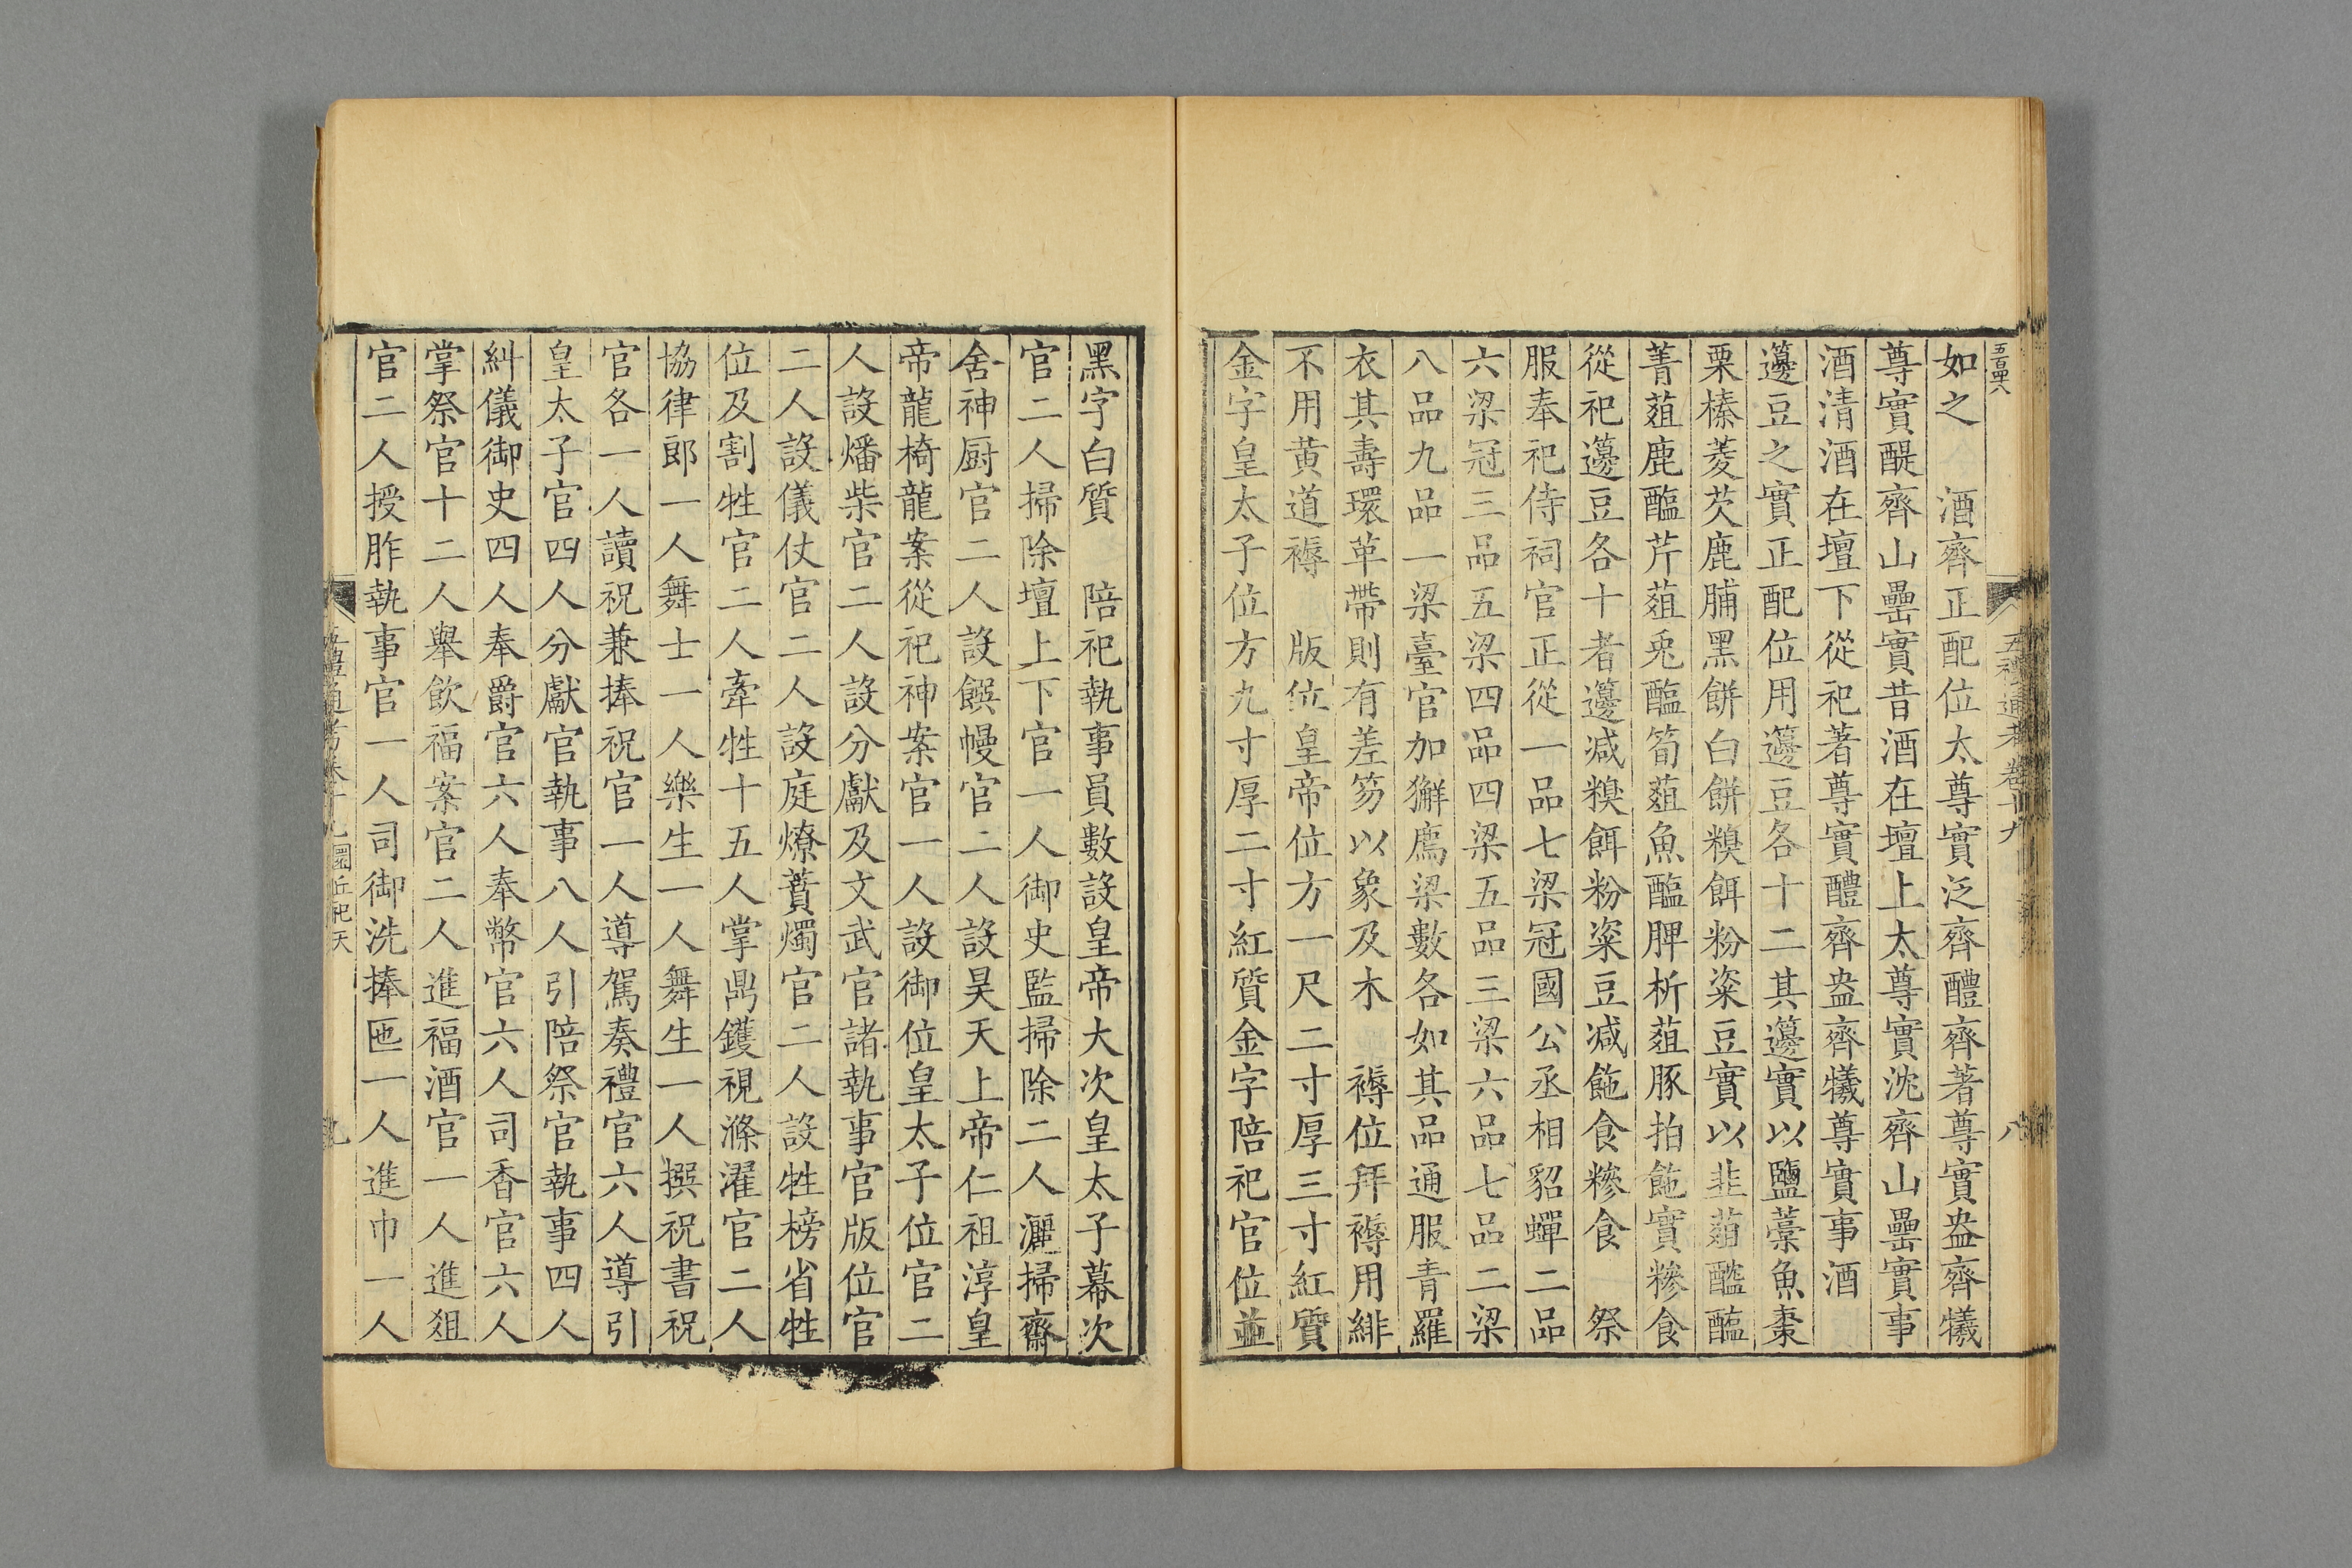 五禮通考卷十九
八
如之　酒齊正配位太尊實泛齊醴齊著尊實盎齊犧
尊實醍齊山罍實昔酒在壇上太尊實沈齊山罍實事
酒清酒在壇下從祀著尊實醴齊盎齊犧尊實事酒
籩豆之實正配位用籩豆各十二其籩實以鹽藁魚棗
栗榛菱芡鹿脯黑餅白餅糗餌粉粢豆實以韭菹醓醢
菁菹鹿醢芹菹兎醢筍菹魚醢脾析菹豚拍飿實糝食
從祀籩豆各十者籩减糗餌粉粢豆减飿食糝食　祭
服奉祀侍祠官正從一品七梁冠國公丞相貂蟬二品
六梁冠三品五梁四品四梁五品三梁六品七品二梁
八品九品一梁臺官加獬廌梁數各如其品通服青羅
衣其壽環革帶則有差笏以象及木　褥位拜褥用緋
不用黄道褥　版位皇帝位方一尺二寸厚三寸紅質
金字皇太子位方九寸厚二寸紅質金字陪祀官位並
黑字白質　陪祀執事員數設皇帝大次皇太子幕次
官二人掃除壇上下官一人御史監掃除二人灑掃齋
舍神厨官二人設饌幔官二人設昊天上帝仁祖淳皇
帝龍椅龍案從祀神案官一人設御位皇太子位官二
人設燔柴官二人設分獻及文武官諸執事官版位官
二人設儀仗官二人設庭燎蕡燭官二人設牲榜省牲
位及割牲官二人牽牲十五人掌鼎鑊視滌濯官二人
協律郎一人舞士一人樂生一人舞生一人撰祝書祝
官各一人讀祝兼捧祝官一人導駕奏禮官六人導引
皇太子官四人分獻官執事八人引陪祭官執事四人
糾儀御史四人奉爵官六人奉幣官六人司香官六人
掌祭官十二人舉飲福案官二人進福酒官一人進俎
官二人授胙執事官一人司御洗捧匜一人進巾一人
五禮通考卷十九圜丘祀天
九